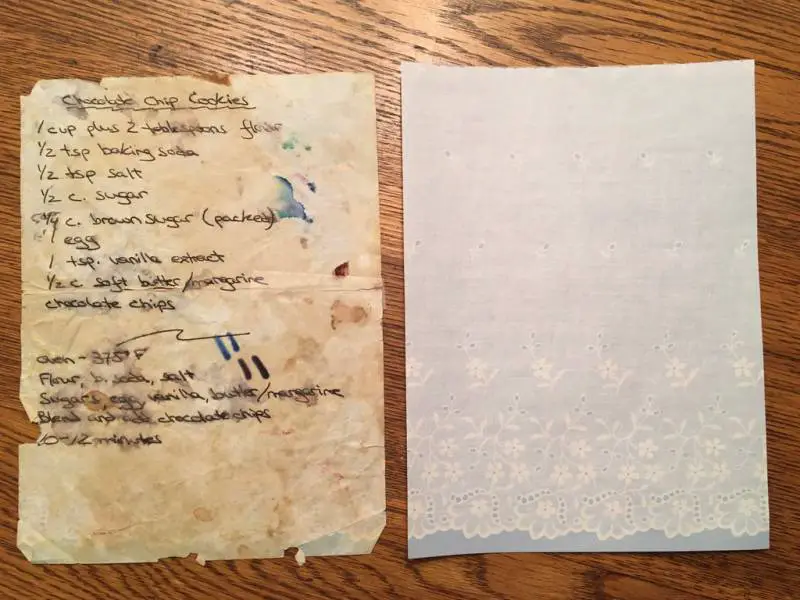 Chocolate Chip Cookies
1 cup plus 2 tablespoons flour
1/2 tsp baking soda
1/2 tsp salt
1/2 c. sugar
c. brown sugar (packed)
1 egg
1 tsp. vanilla extract
1/2 c. soft butter/margarine
chocolate chips
oven - 375° F
Flour, b. soda, salt
Sugars, egg, vanilla, butter/margarine
Blend and add chocolate chips
10-12 minutes